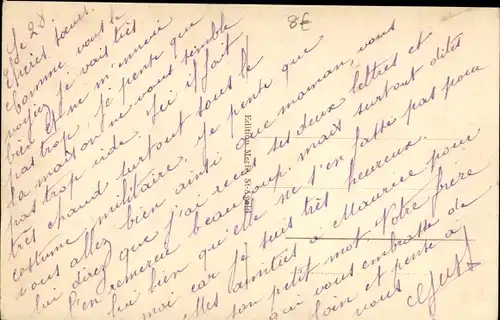 Le 28.
8€
Chères soeurs.
Comme vous le
voyez je vais très
bien et ne m'ennuie
pas trop, je pense que
la maison ne vous semble
pas trop vide. Ici il fait
très chaud surtout sous le
costume militaire. Je pense que
vous allez bien ainsi que maman, vous
lui direz que j'ai reçu ses deux lettres et
l'en remercie beaucoup, mais surtout dites
lui bien qu'elle ne s'en fasse pas pour
moi car je suis très heureux.
amitiés à Maurice pour
son petit mot. Votre frère
qui vous embrasse de
loin et pense à
vous
Edition